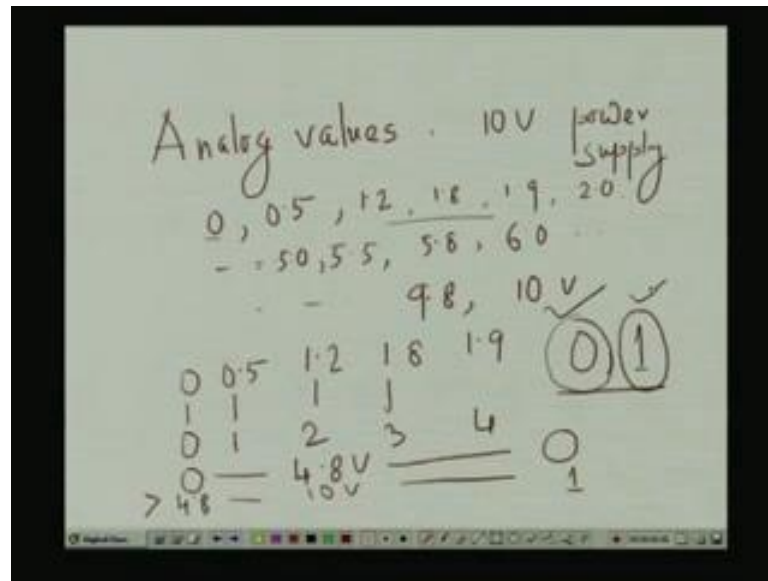 Analog values. 10V power supply
0, 0.5, 1.2, 1.8, 1.9, 2.0.
- . 5.0, 5.5, 5.8, 6.0 ..
. - 9.8, 10 V
0 0.5 1.2 1.8 1.9 0 1
0 1 2 3 4
0 — 4.8V — 0
> 4.8 — 10V — 1